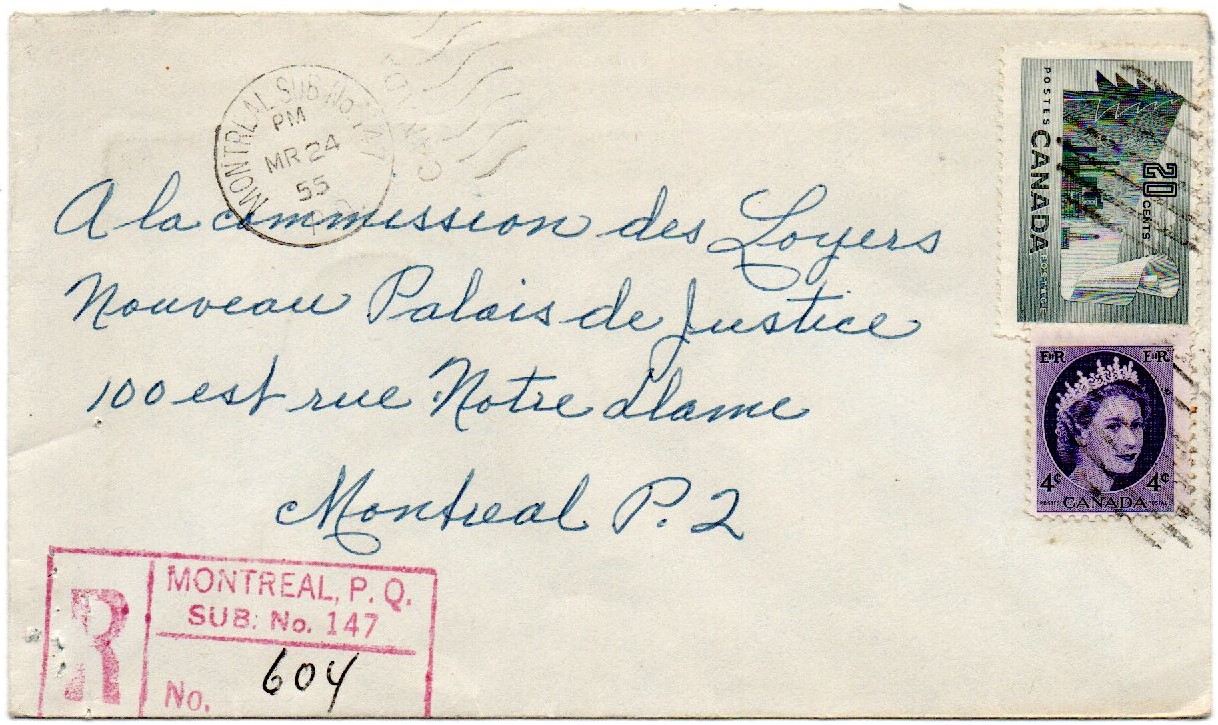 MONTREAL SUB No. 147
PM
MR 24
55
A la commission des Loyers
Nouveau Palais de Justice
100 est rue Notre Dame
Montreal P. 2
POSTES CANADA POSTAGE
20 CENTS
EIIR EIIR
4¢ 4¢
CANADA
R
MONTREAL, P. Q.
SUB. No. 147
No. 604